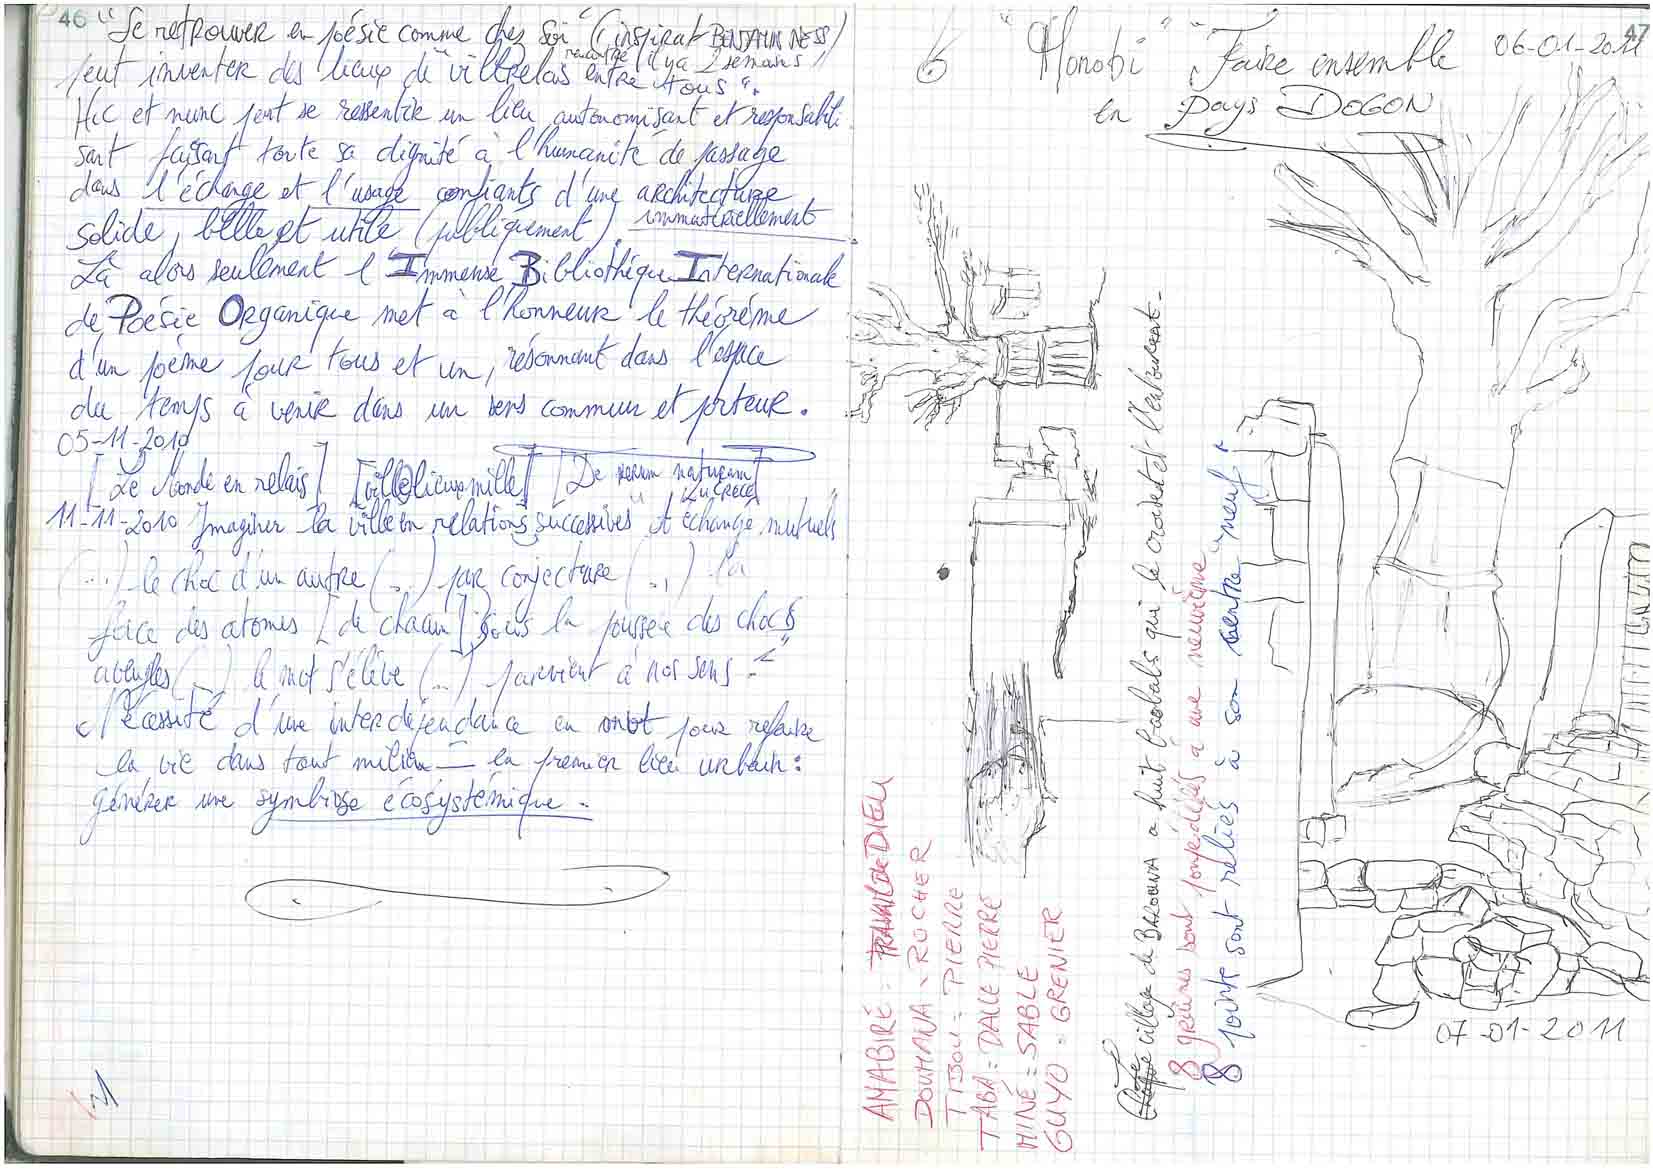 46
"Se retrouver en poésie comme chez soi" (inspirat BENJAMIN NESS)
rencontré il y a 2 semaines
peut inventer des lieux de villrelais entre tous".
Hic et nunc peut se ressentir un lieu autonomisant et responsabili
sant faisant toute sa dignité à l'humanité de passage
dans l'échange et l'usage confiants d'une architecture
immatériellement
solide, belle et utile (publiquement).
Là alors seulement l'Immense Bibliothèque Internationale
de Poésie Organique met à l'honneur le théorème
d'un poème pour tous et un, résonnant dans l'espace
du temps à venir dans un sens commun et porteur.
05-11-2010
[Le Monde en relais] [vill@lieuxmille] [De rerum naturam
LUCRECE]
11-11-2010 Imaginer la ville en relations successives "et échange mutuels
(...) le choc d'un autre (...) par conjecture (...) la
face des atomes [de chacun] sous la poussée des chocs
aveugles (...) le mot s'élève (...) parvient à nos sens"
Nécessité d'une interdépendance en mot pour refaire
la vie dans tout milieu — en premier lieu urbain :
générer une symbiose écosystémique.
47
6 "Monobi" "Faire ensemble 06-01-2011
en Pays DOGON
AMABIRÉ = TRAVAIL DE DIEU
DOUMANA = ROCHER
TIBOU = PIERRE
TABA = DALLE PIERRE
MINÉ = SABLE
GUYO = GRENIER
village de BAROUNA a huit baobabs qui le croisent et l'entourent.
8 graines sont jonpedlées à une neuvième
8 points sont reliés à son ventre "neuf"
07-01-2011